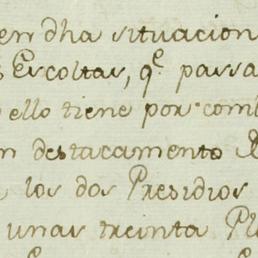 en dha situacion
Escoltas, q.e passa
ello tiene por com
destacamento
los dos Presidios
unas treinta